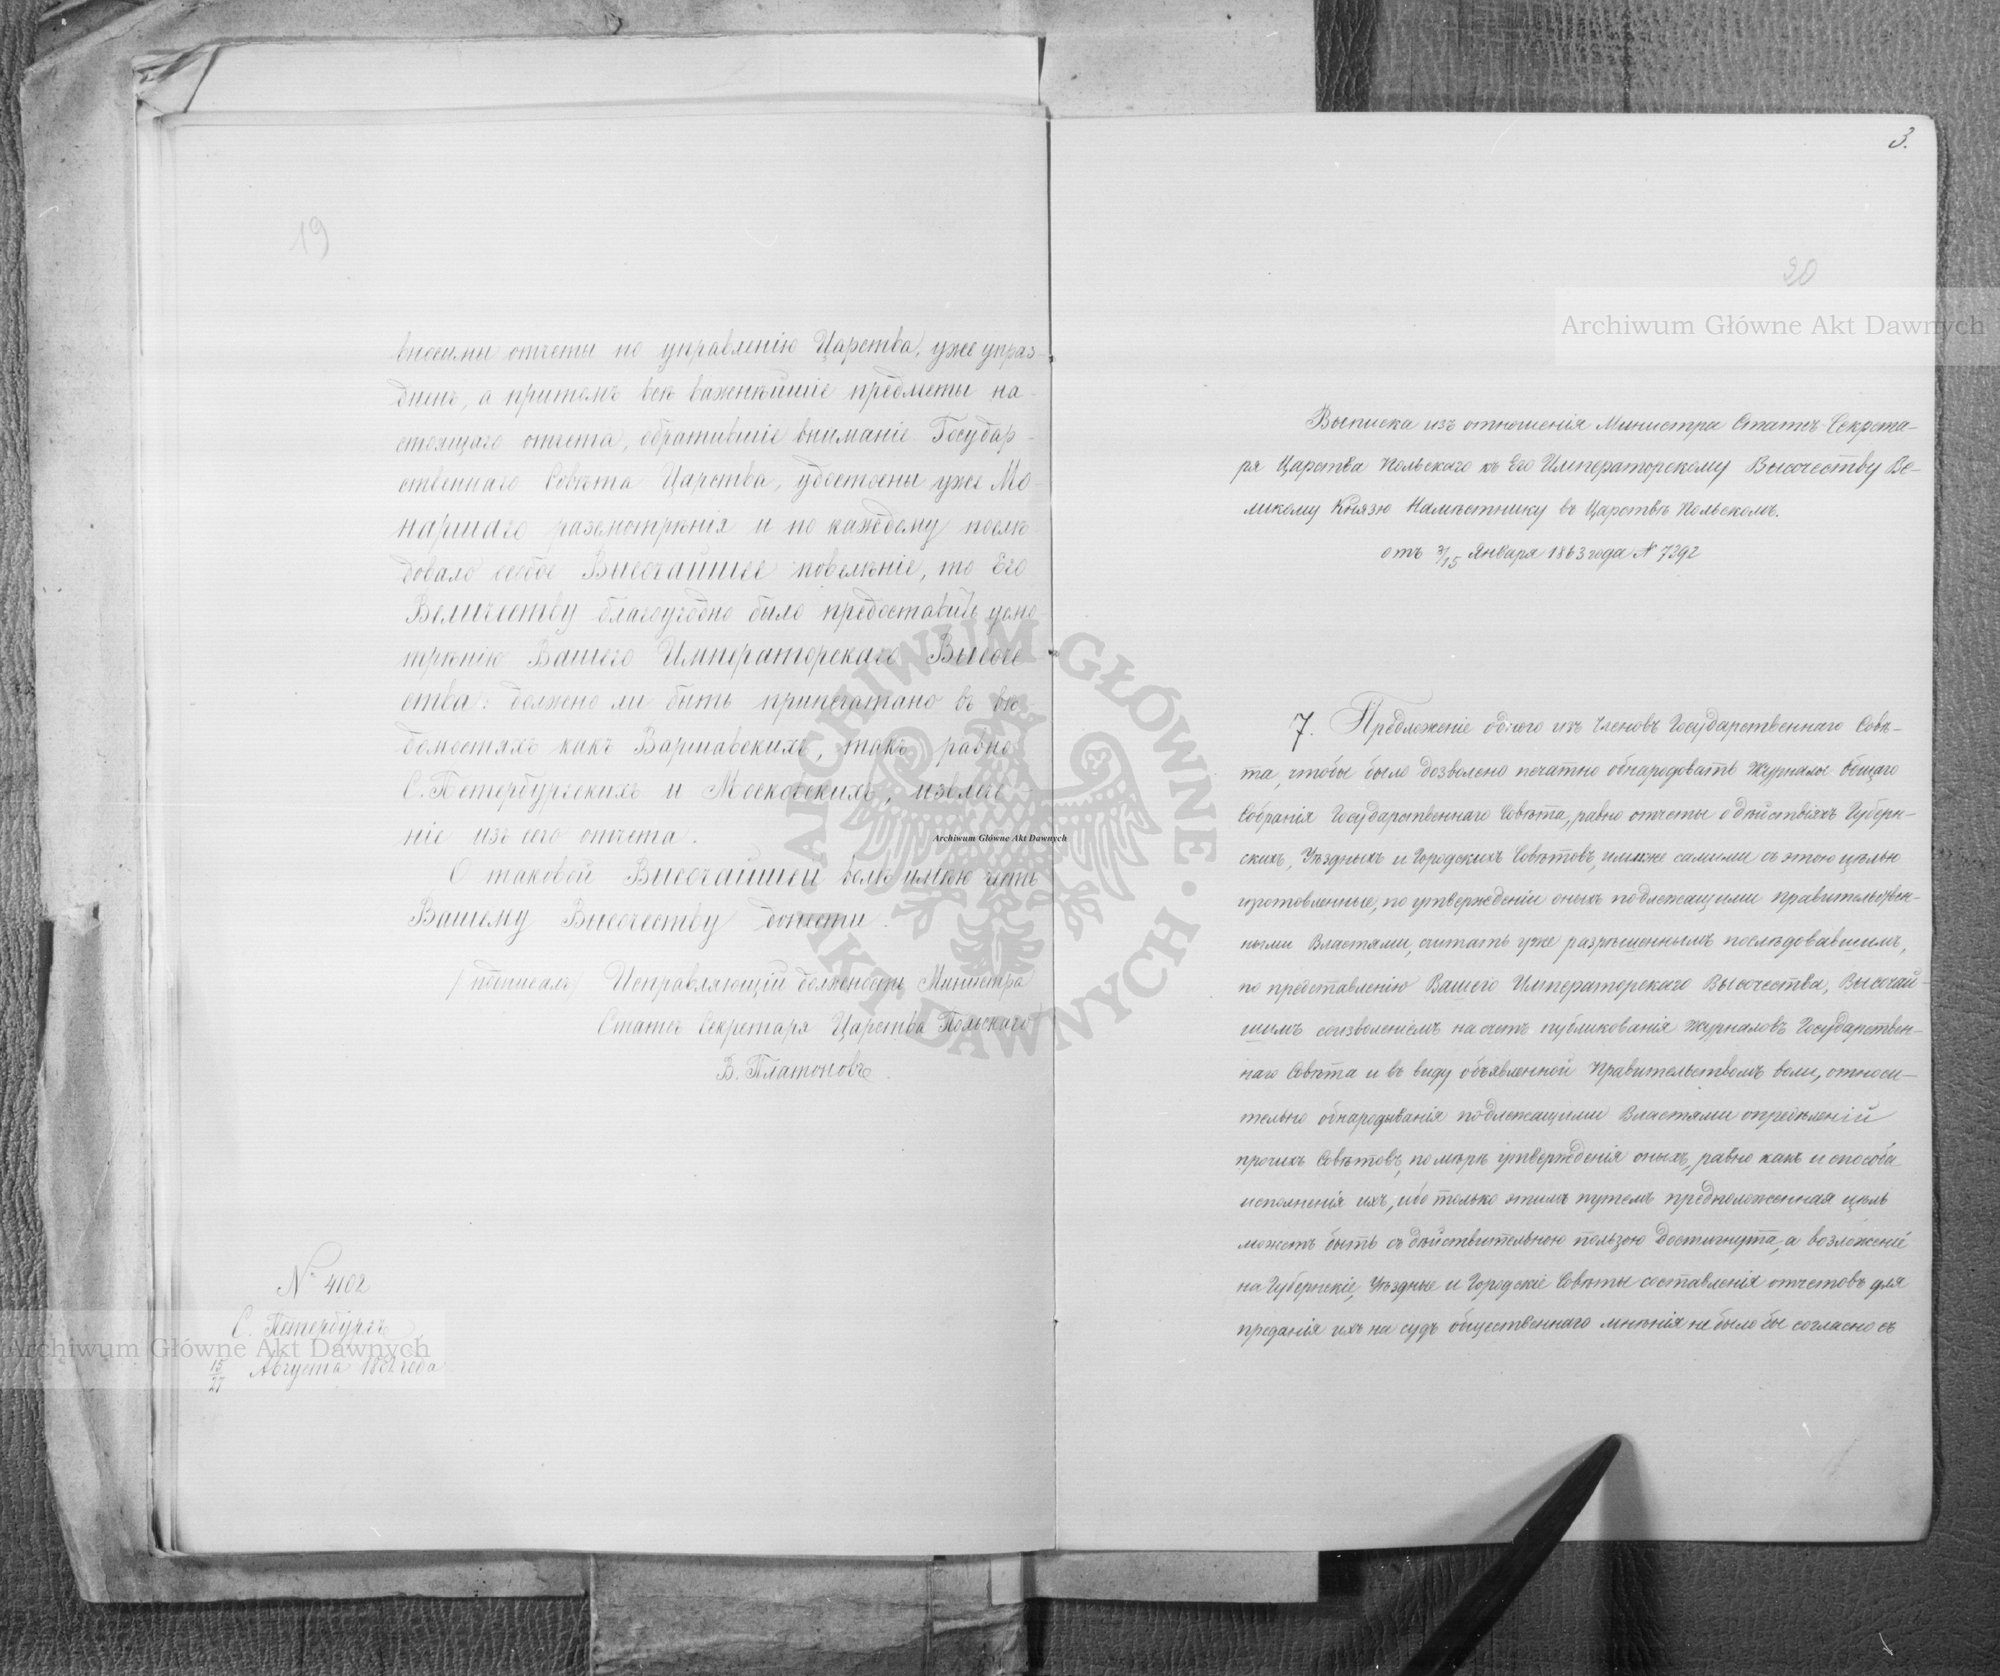 19
вносимы отчеты по управленію Царства, уже упраз-
дненъ, а притомъ всѣ важнѣйшіе предметы на-
стоящаго отчета, обратившіе вниманіе Государ-
ственнаго Совѣта Царства, удостоены уже Мо-
наршаго разсмотрѣнія и по каждому послѣ-
довало особое Высочайшее повелѣніе, то Его
Величеству благоугодно было предоставить усмо-
трѣнію Вашего Императорскаго Высоче-
ства: должно ли быть припечатано въ вѣ-
домостяхъ какъ Варшавскихъ, такъ равно
С. Петербургскихъ и Московскихъ, извлече-
ніе изъ сего отчета.
О таковой Высочайшей волѣ имѣю честь
Вашему Высочеству донести.
(подписалъ) Исправляющій должность Министра
Статсъ Секретаря Царства Польскаго
В. Платоновъ.
№ 4102
С. Петербургъ
15/27 Августа 1862 года
3.
20
Выписка изъ отношенія Министра Статсъ-Секрета-
ря Царства Польскаго къ Его Императорскому Высочеству Ве-
ликому Князю Намѣстнику въ Царствѣ Польскомъ.
отъ 3/15 Января 1863 года № 7292
7. Предложеніе одного изъ Членовъ Государственнаго Совѣ-
та, чтобы было дозволено печатно обнародовать Журналы Общаго
Собранія Государственнаго Совѣта, равно отчеты о дѣйствіяхъ Губерн-
скихъ, Уѣздныхъ и Городскихъ Совѣтовъ, ими же самими съ этою цѣлью
изготовленные, по утвержденіи оныхъ подлежащими Правительствен-
ными Властями, считать уже разрѣшеннымъ послѣдовавшимъ,
по представленію Вашего Императорскаго Высочества, Высочай-
шимъ соизволеніемъ на счетъ публикованія Журналовъ Государствен-
наго Совѣта и въ виду объявленной Правительствомъ воли, относи-
тельно обнародыванія подлежащими Властями опредѣленій
прочихъ Совѣтовъ, по мѣрѣ утвержденія оныхъ, равно какъ и способа
исполненія ихъ, ибо только этимъ путемъ предположенная цѣль
можетъ быть съ дѣйствительною пользою достигнута, а возложеніе
на Губернскіе, Уѣздные и Городскіе Совѣты составленія отчетовъ для
преданія ихъ на судъ общественнаго мнѣнія не было бы согласно съ
Archiwum Główne Akt Dawnych
Archiwum Główne Akt Dawnych
Archiwum Główne Akt Dawnych
ARCHIWUM GŁÓWNE AKT DAWNYCH